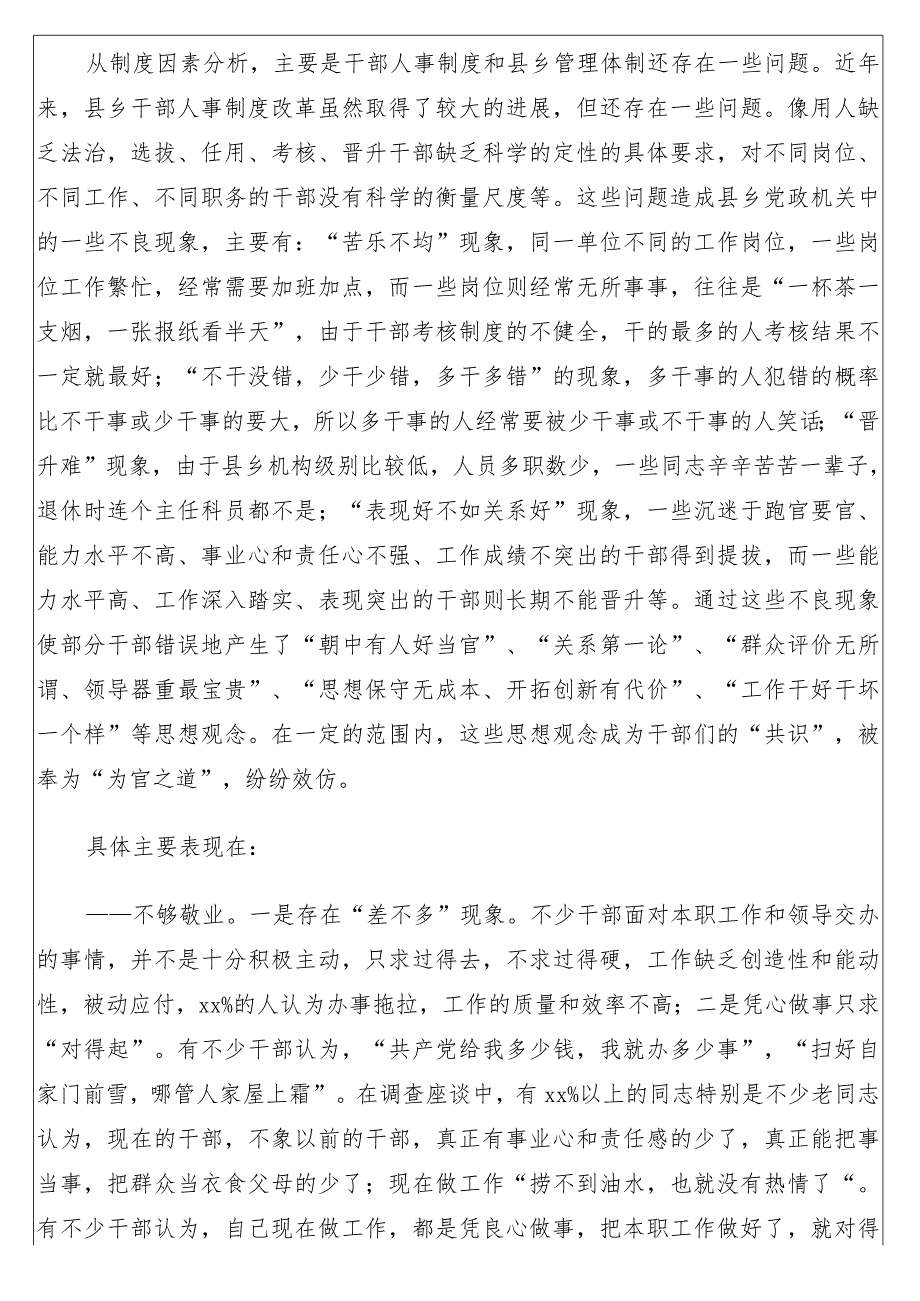 从制度因素分析，主要是干部人事制度和县乡管理体制还存在一些问题。近年
来，县乡干部人事制度改革虽然取得了较大的进展，但还存在一些问题。像用人缺
乏法治，选拔、任用、考核、晋升干部缺乏科学的定性的具体要求，对不同岗位、
不同工作、不同职务的干部没有科学的衡量尺度等。这些问题造成县乡党政机关中
的一些不良现象，主要有：“苦乐不均”现象，同一单位不同的工作岗位，一些岗
位工作繁忙，经常需要加班加点，而一些岗位则经常无所事事，往往是“一杯茶一
支烟，一张报纸看半天”，由于干部考核制度的不健全，干的最多的人考核结果不
一定就最好；“不干没错，少干少错，多干多错”的现象，多干事的人犯错的概率
比不干事或少干事的要大，所以多干事的人经常要被少干事或不干事的人笑话；“晋
升难”现象，由于县乡机构级别比较低，人员多职数少，一些同志辛辛苦苦一辈子，
退休时连个主任科员都不是；“表现好不如关系好”现象，一些沉迷于跑官要官、
能力水平不高、事业心和责任心不强、工作成绩不突出的干部得到提拔，而一些能
力水平高、工作深入踏实、表现突出的干部则长期不能晋升等。通过这些不良现象
使部分干部错误地产生了“朝中有人好当官”、“关系第一论”、“群众评价无所
谓、领导器重最宝贵”、“思想保守无成本、开拓创新有代价”、“工作干好干坏
一个样”等思想观念。在一定的范围内，这些思想观念成为干部们的“共识”，被
奉为“为官之道”，纷纷效仿。
具体主要表现在：
——不够敬业。一是存在“差不多”现象。不少干部面对本职工作和领导交办
的事情，并不是十分积极主动，只求过得去，不求过得硬，工作缺乏创造性和能动
性，被动应付，xx%的人认为办事拖拉，工作的质量和效率不高；二是凭心做事只求
“对得起”。有不少干部认为，“共产党给我多少钱，我就办多少事”，“扫好自
家门前雪，哪管人家屋上霜”。在调查座谈中，有 xx%以上的同志特别是不少老同志
认为，现在的干部，不象以前的干部，真正有事业心和责任感的少了，真正能把事
当事，把群众当衣食父母的少了；现在做工作“捞不到油水，也就没有热情了“。
有不少干部认为，自己现在做工作，都是凭良心做事，把本职工作做好了，就对得